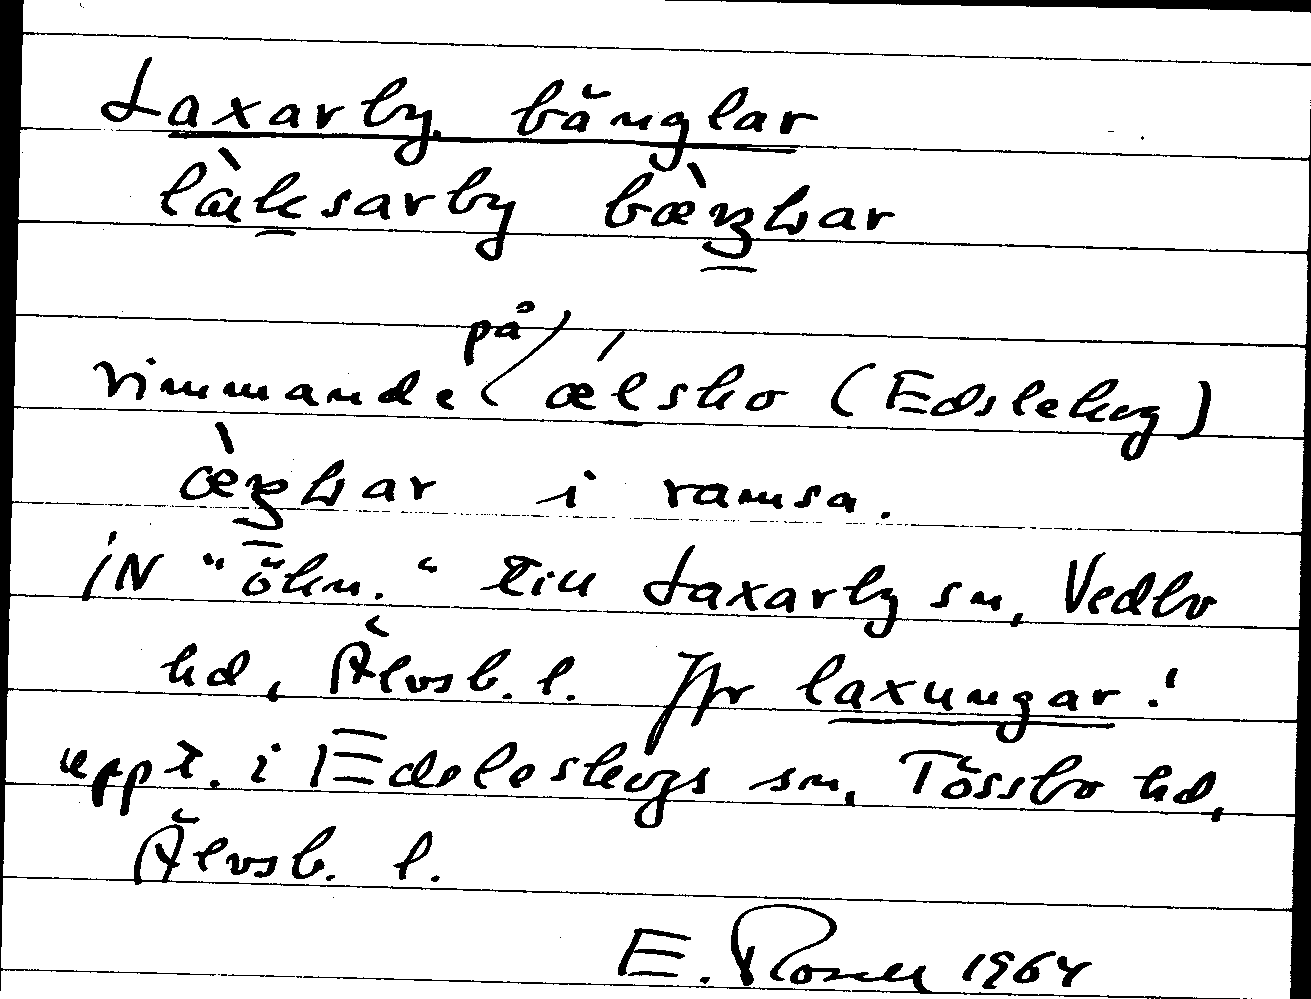 Laxarby bänglar
làksarby bæ̀ŋlar
rimmande på ǽlsko (Edslekog)
æ̀ŋlar i ramsa.
IN "ökn." till Laxarby sn, Vedbo
hd, Älvsb. l. Jfr laxungar!
uppt. i Edsleskogs sn, Tössbo hd,
Älvsb. l.
E. Rosell 1964